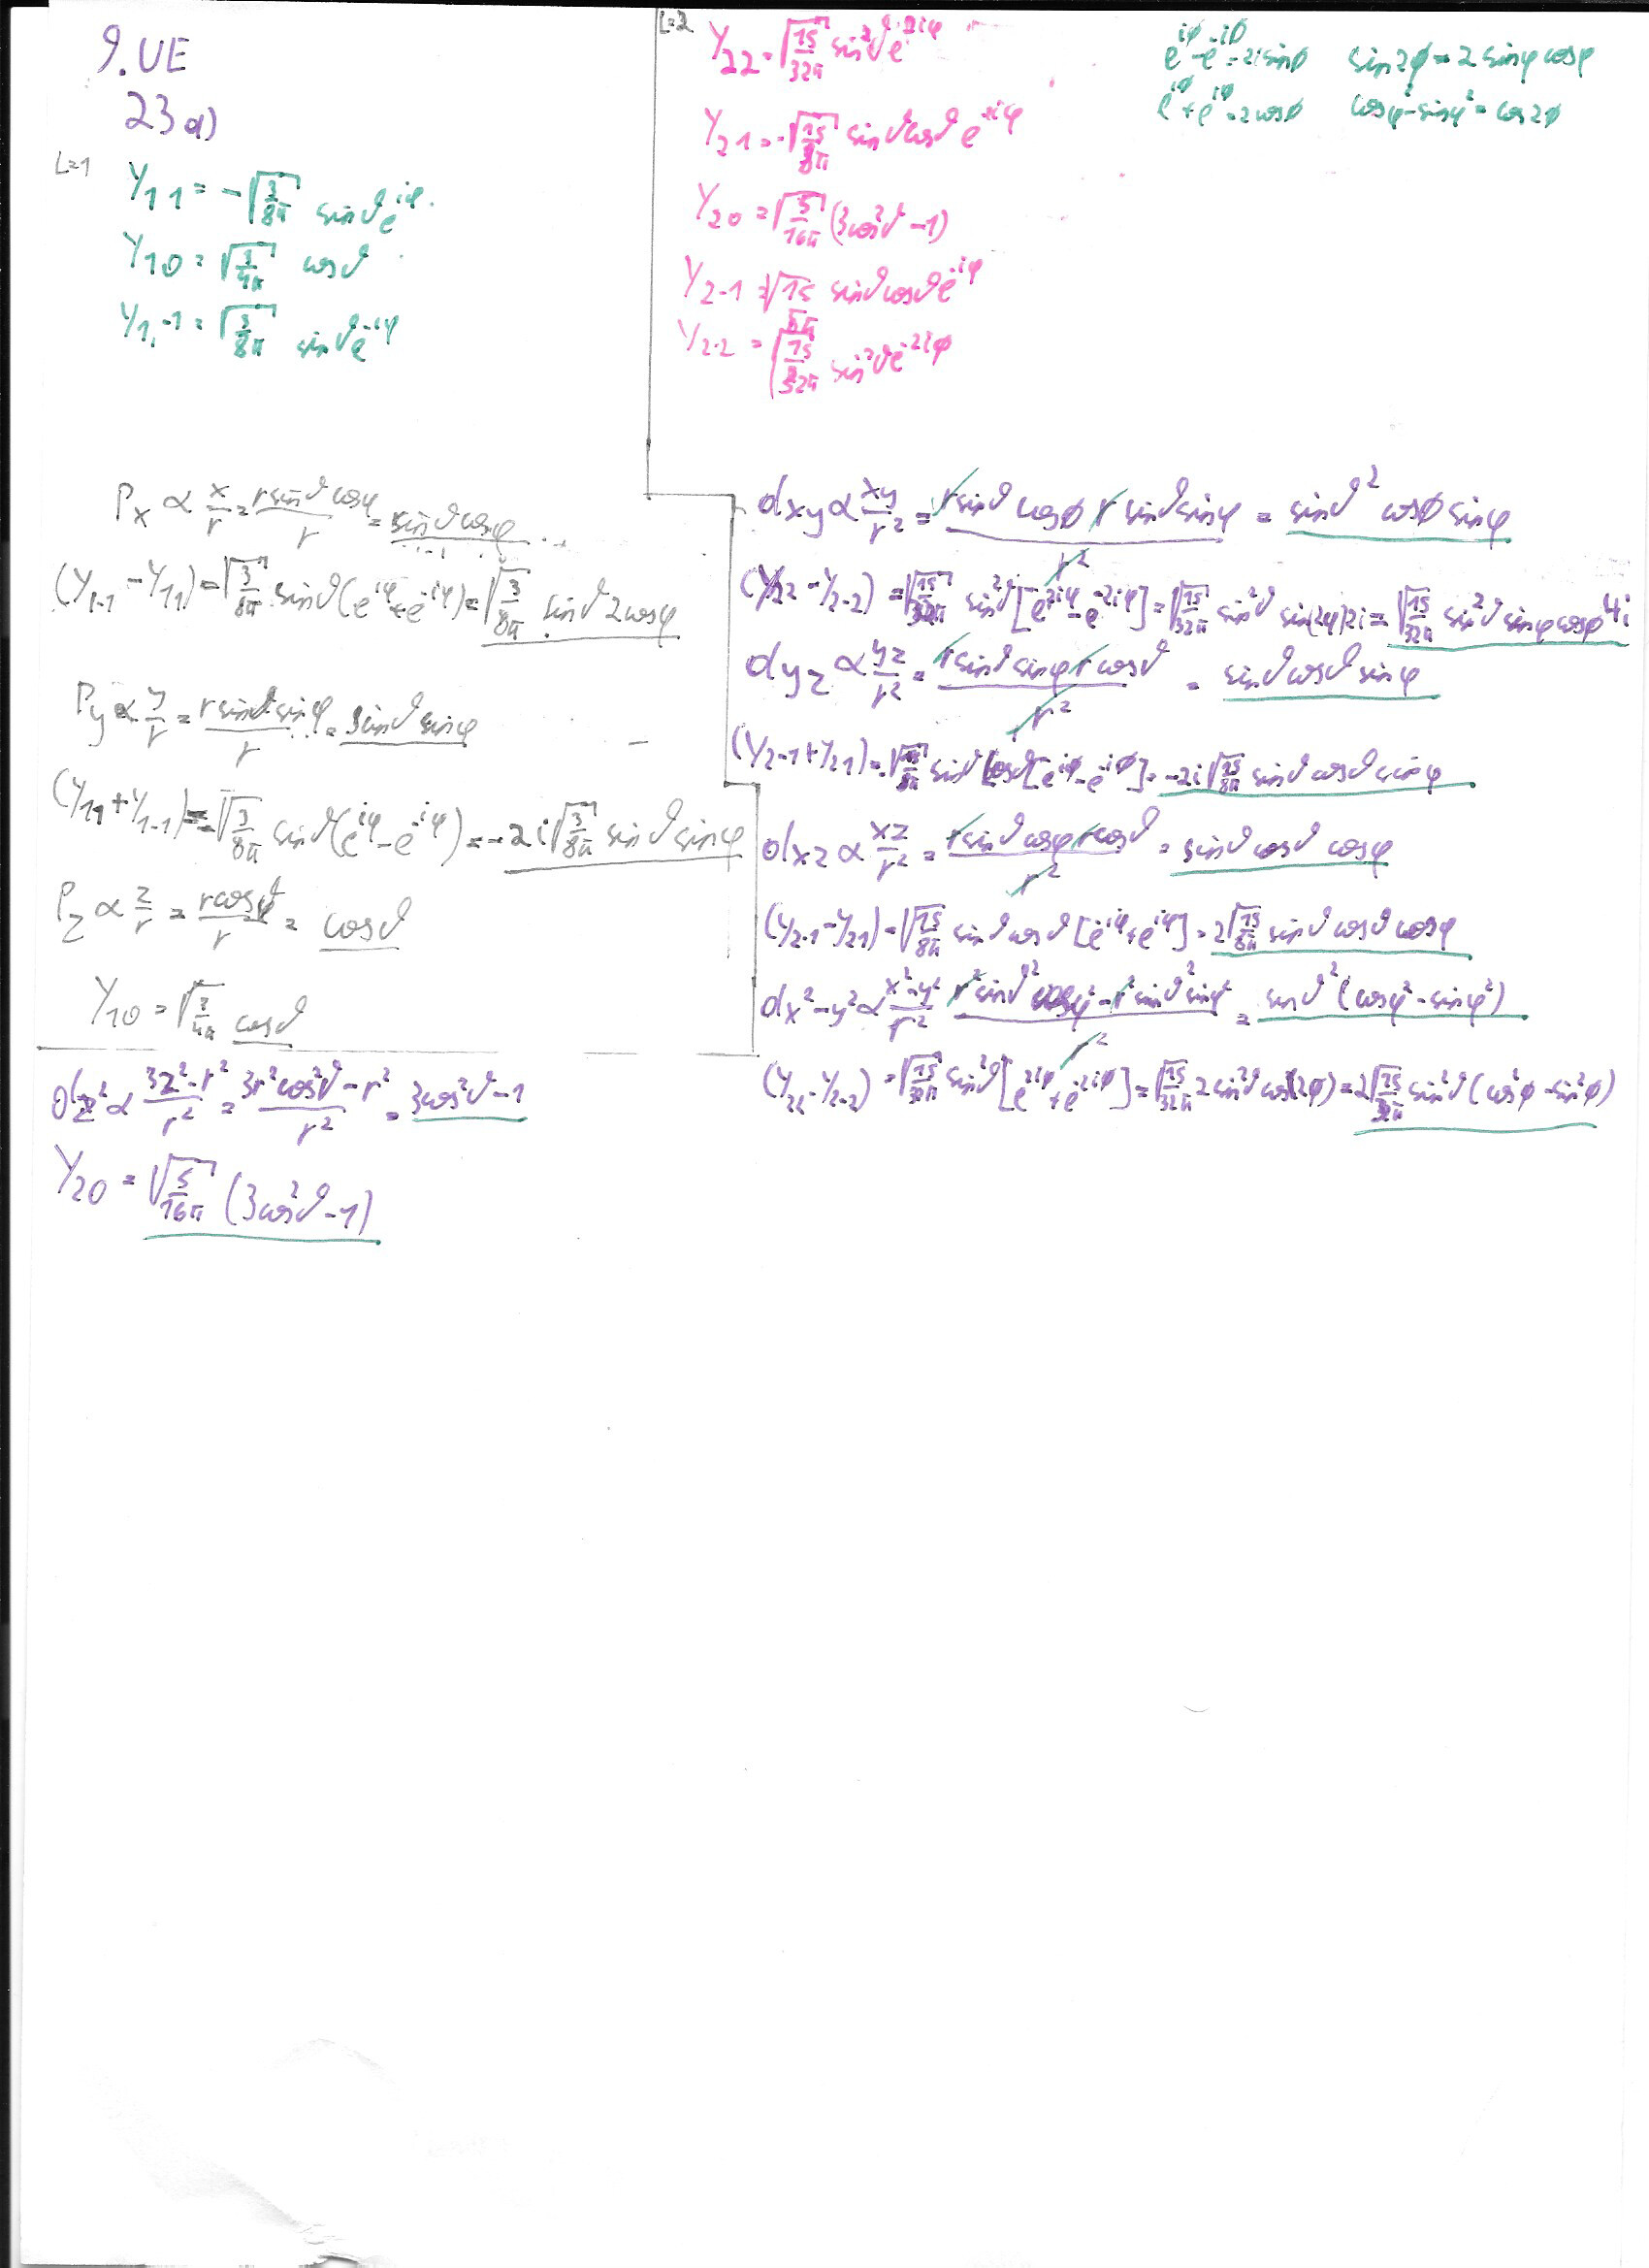 9. UE
23 a)
L=1
Y₁₁ = -√(3/8π) sinϑ e^{iφ}
Y₁₀ = √(3/4π) cosϑ
Y₁,₋₁ = √(3/8π) sinϑ e^{-iφ}
L=2
Y₂₂ = √(15/32π) sin²ϑ e^{2iφ}
Y₂₁ = -√(15/8π) sinϑ cosϑ e^{iφ}
Y₂₀ = √(5/16π) (3cos²ϑ - 1)
Y₂₋₁ = √(15/8π) sinϑ cosϑ e^{-iφ}
Y₂₋₂ = √(15/32π) sin²ϑ e^{-2iφ}
e^{iϕ} - e^{-iϕ} = 2i sinϕ sin2ϕ = 2 sinφ cosφ
e^{iϕ} + e^{iϕ} = 2cosϕ cosφ² - sinφ² = cos2ϕ
P_x ∝ x/r = r sinϑ cosφ / r = sinϑ cosφ
(Y₁₋₁ - Y₁₁) = √(3/8π) sinϑ (e^{iφ} + e^{-iφ}) = √(3/8π) sinϑ 2cosφ
P_y ∝ y/r = r sinϑ sinφ / r = sinϑ sinφ
(Y₁₁ + Y₁₋₁) = -√(3/8π) sinϑ (e^{iφ} - e^{-iφ}) = -2i √(3/8π) sinϑ sinφ
P_z ∝ z/r = r cosϑ / r = cosϑ
Y₁₀ = √(3/4π) cosϑ
d_z² ∝ 3z² - r² / r² = 3r² cos²ϑ - r² / r² = 3cos²ϑ - 1
Y₂₀ = √(5/16π) (3cos²ϑ - 1)
d_xy ∝ xy/r² = r sinϑ cosϕ r sinϑ sinφ / r² = sinϑ² cosϕ sinφ
(Y₂₂ - Y₂₋₂) = √(15/32π) sin²ϑ [e^{2iφ} - e^{-2iφ}] = √(15/32π) sin²ϑ sin(2φ) 2i = √(15/32π) sin²ϑ sinφ cosφ 4i
d_yz ∝ yz/r² = r sinϑ sinφ r cosϑ / r² = sinϑ cosϑ sinφ
(Y₂₋₁ + Y₂₁) = -√(15/8π) sinϑ cosϑ [e^{iϕ} - e^{-iϕ}] = -2i √(15/8π) sinϑ cosϑ sinφ
d_xz ∝ xz/r² = r sinϑ cosφ r cosϑ / r² = sinϑ cosϑ cosφ
(Y₂₋₁ - Y₂₁) = √(15/8π) sinϑ cosϑ [e^{iφ} + e^{iφ}] = 2√(15/8π) sinϑ cosϑ cosφ
d_x²-y² ∝ x² - y² / r² = r² sinϑ² cosφ² - r² sinϑ² sinφ² / r² = sinϑ² (cosφ² - sinφ²)
(Y₂₂ - Y₂₋₂) = √(15/32π) sin²ϑ [e^{2iφ} + e^{-2iϕ}] = √(15/32π) 2 sin²ϑ cos(2ϕ) = 2√(15/32π) sin²ϑ (cos²ϕ - sin²ϕ)